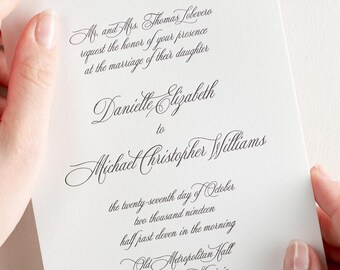 Mr. and Mrs. Thomas Lobevero
request the honor of your presence
at the marriage of their daughter
Danielle Elizabeth
to
Michael Christopher Williams
the twenty-seventh day of October
two thousand nineteen
half past eleven in the morning
Old Metropolitan Hall